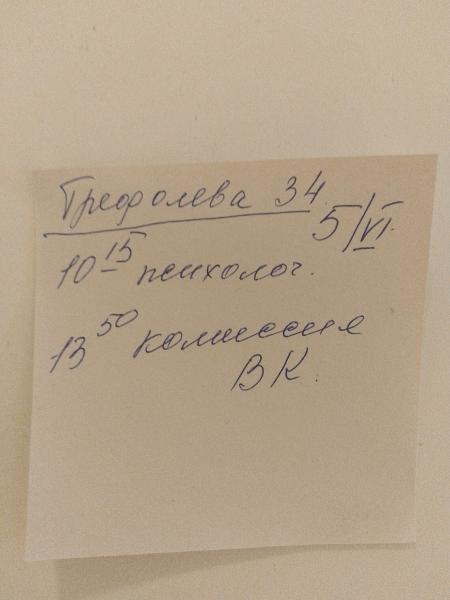 Трефолева 34
5/VI.
10 15 психолог.
13 50 комиссия
ВК.